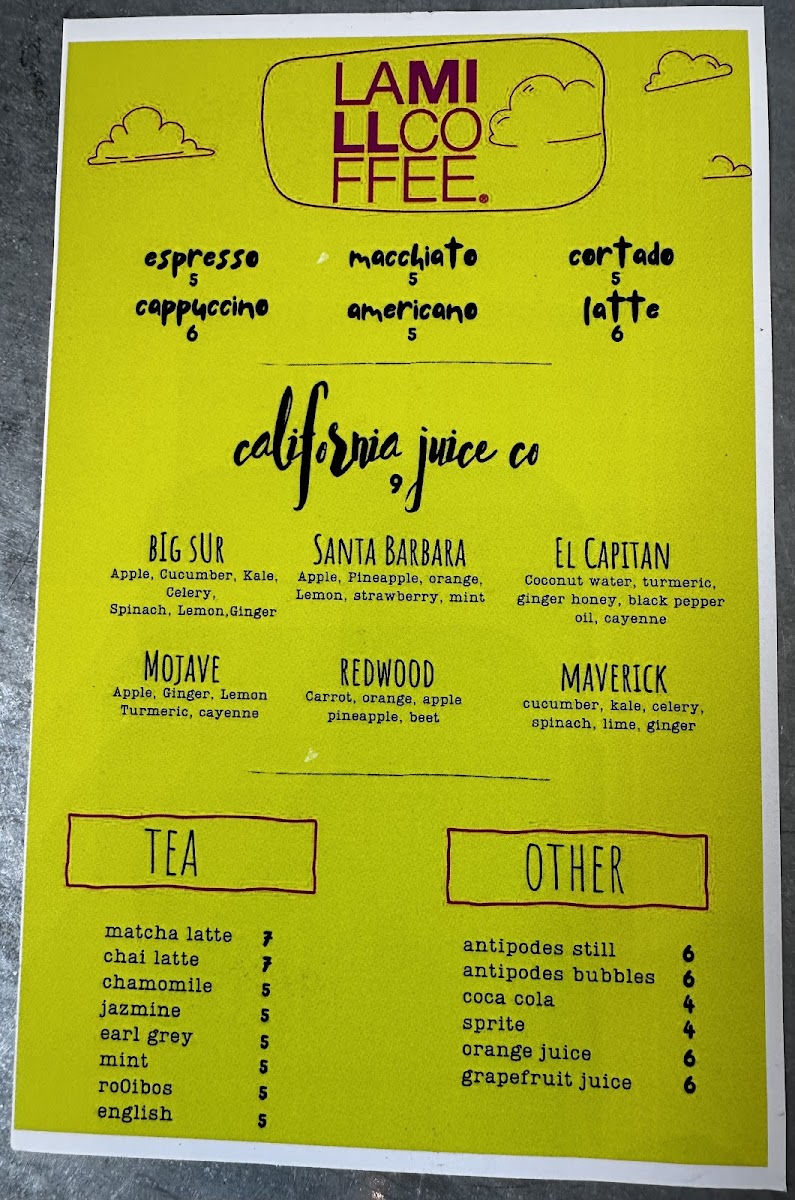 LAMI
LLCO
FFEE®
espresso macchiato cortado
5 5 5
cappuccino americano latte
6 5 6
california juice co
9
bIg sUr Santa Barbara El Capitan
Apple, Cucumber, Kale,
Celery,
Spinach, Lemon,Ginger
Apple, Pineapple, orange,
Lemon, strawberry, mint
Coconut water, turmeric,
ginger honey, black pepper
oil, cayenne
Mojave redwood maverick
Apple, Ginger, Lemon
Turmeric, cayenne
Carrot, orange, apple
pineapple, beet
cucumber, kale, celery,
spinach, lime, ginger
TEA
matcha latte 7
chai latte 7
chamomile 5
jazmine 5
earl grey 5
mint 5
ro0ibos 5
english 5
OTHER
antipodes still 6
antipodes bubbles 6
coca cola 4
sprite 4
orange juice 6
grapefruit juice 6